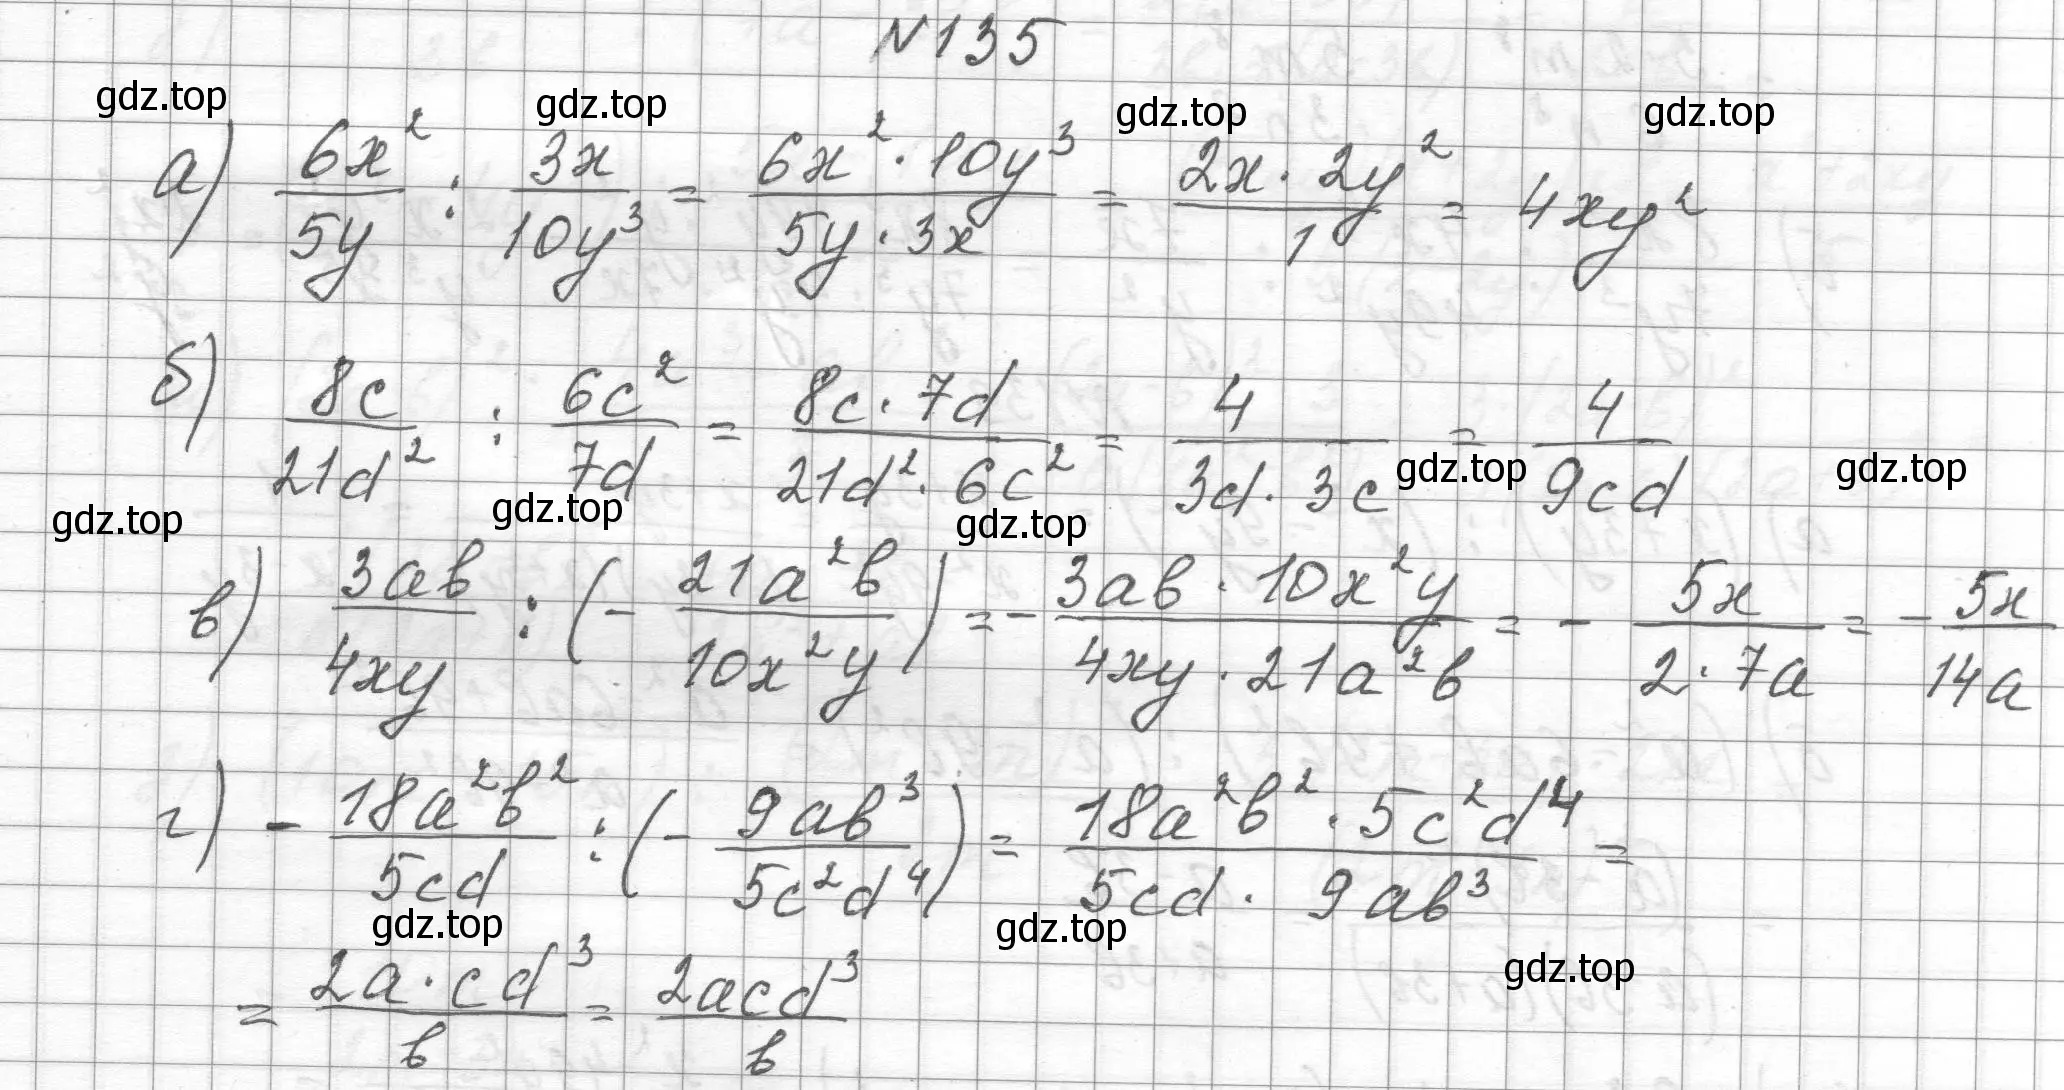 N135
gdz.top gdz.top gdz.top gdz.top
а) 6x²/5y : 3x/10y³ = 6x²·10y³/5y·3x = 2x·2y²/1 = 4xy²
б) 8c/21d² : 6c²/7d = 8c·7d/21d²·6c² = 4/3d·3c = 4/9cd
gdz.top gdz.top gdz.top gdz.top gdz.top
в) 3ab/4xy : (- 21a²b/10x²y) = - 3ab·10x²y/4xy·21a²b = - 5x/2·7a = - 5x/14a
г) - 18a²b²/5cd : (- 9ab³/5c²d⁴) = 18a²b²·5c²d⁴/5cd·9ab³ =
gdz.top gdz.top gdz.top
= 2a·cd³/b = 2acd³/b